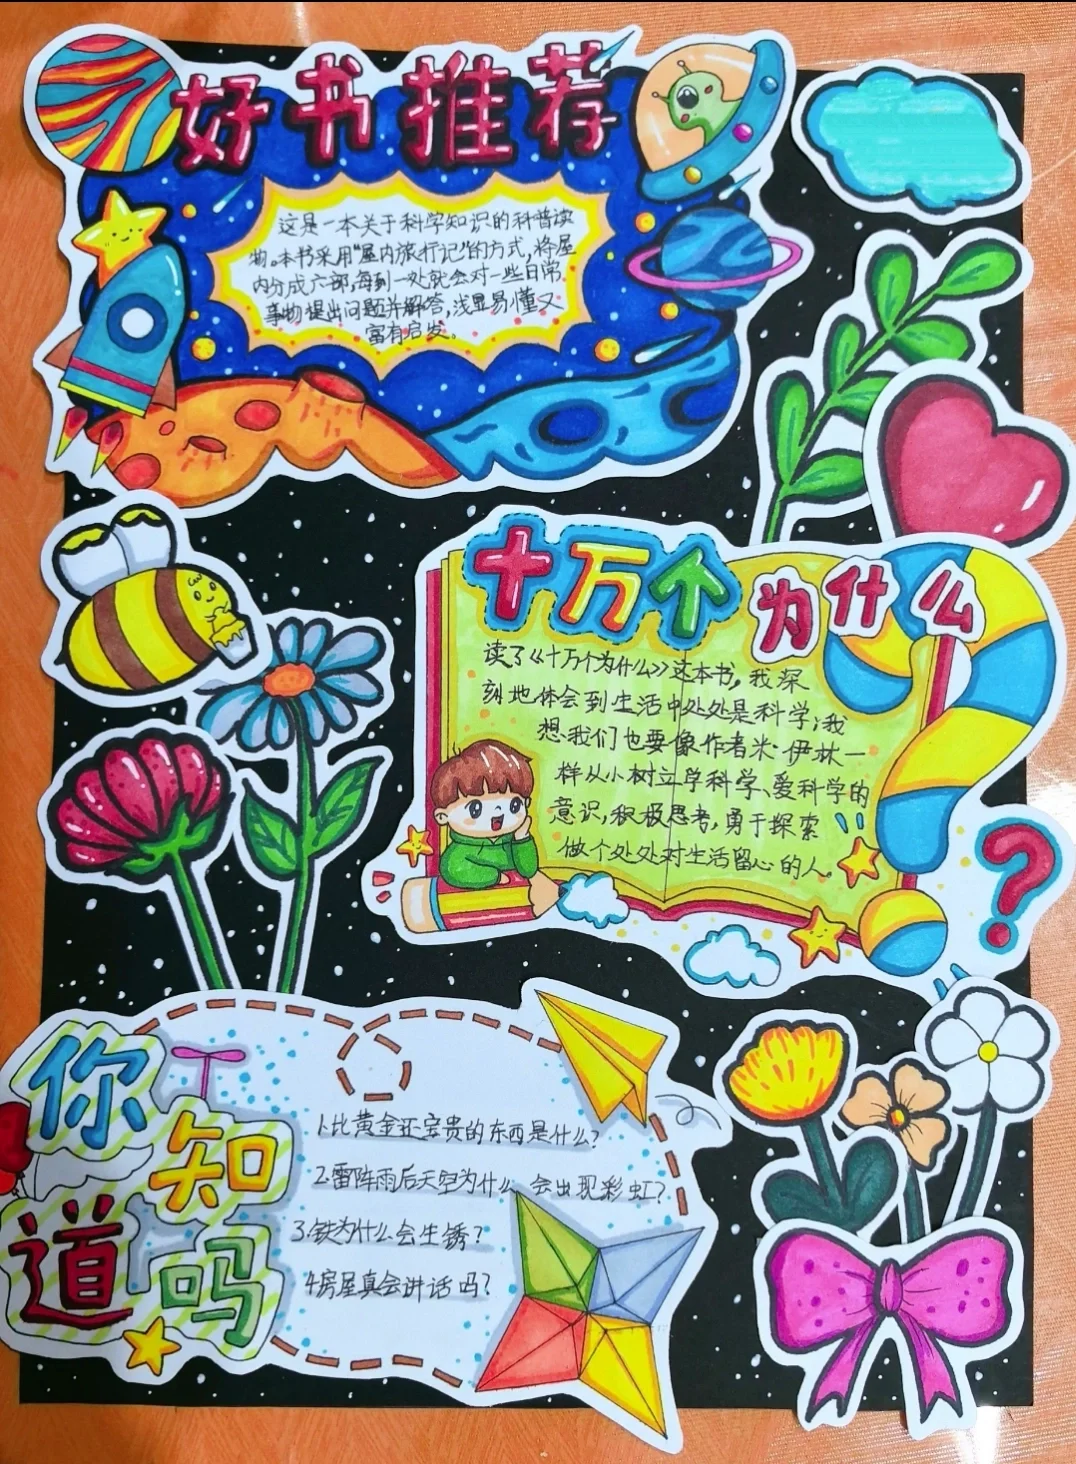 好书推荐
这是一本关于科学知识的科普读
物。本书采用"屋内旅行记"的方式，将屋
内分成六部，每到一处就会对一些日常
事物提出问题并解答，浅显易懂又
富有启发。
十万个为什么
读了《十万个为什么》这本书，我深
刻地体会到生活中处处是科学；我
想我们也要像作者米·伊林一
样从小树立学科学、爱科学的
意识，积极思考，勇于探索
做个处处对生活留心的人。
你知道吗
1.比黄金还宝贵的东西是什么？
2.雷阵雨后天空为什么会出现彩虹？
3.铁为什么会生锈？
4.房屋真会讲话吗？